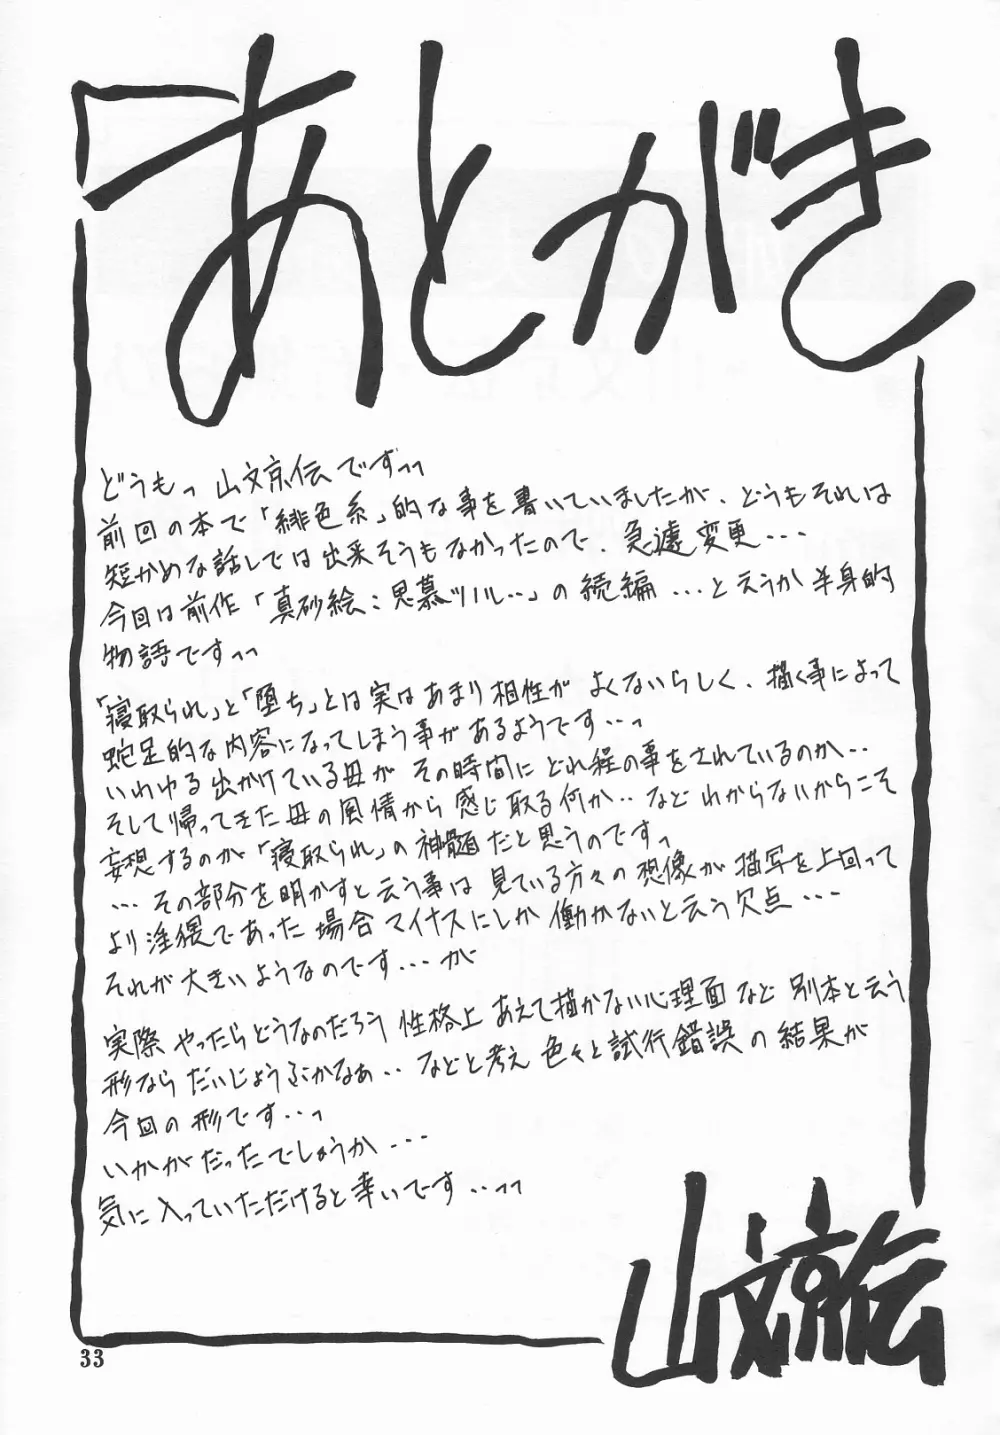 あとがき
どうもっ 山文京伝です〜
前回の本で「緋色系」的な事を書いていましたが、どうもそれは
短かめな話しでは出来そうもなかったので、急遽変更・・・
今回は前作「真砂絵:思慕ツハル‥」の続編・・・と云うか半身的
物語です〜
「寝取られ」と「堕ち」とは実はあまり相性が よくないらしく、描く事によって
蛇足的な内容になってしまう事があるようです・・・っ
いわゆる出かけている母が その時間に どれ程の事をされているのか‥
そして帰ってきた母の風情から感じ取る何か‥ などわからないからこそ
妄想するのが「寝取られ」の神髄だと思うのですっ
・・・その部分を明かすと云う事は 見ている方々の想像が描写を上回って
より淫猥であった場合マイナスにしか働かないと云う欠点・・・
それが大きいようなのです・・・が
実際やったらどうなのだろう 性格上あえて描かない心理面など 別本と云う
形なら だいじょうぶかなぁ‥ などと考え 色々と試行錯誤の結果が
今回の形です・・・っ
いかがだったでしょうか・・・
気に入っていただけると幸いです・・〜
山文京伝
33